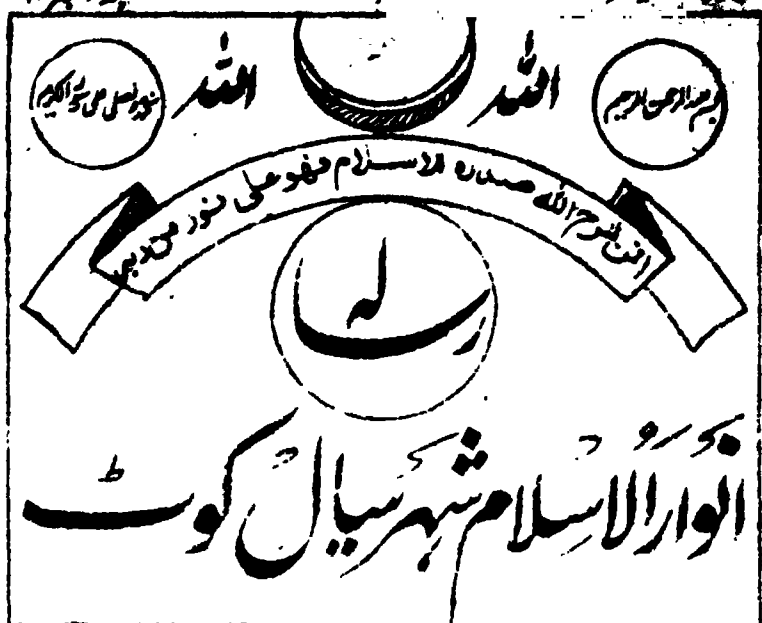 بسم اللہ الرحمن الرحیم
اللہ
اللہ
نحمدہ ونصلی علی رسولہ الکریم
افمن شرح اللہ صدرہ للاسلام فھو علی نور من ربہ
رسالہ
انوارُالاسلام شہر سیال کوٹ